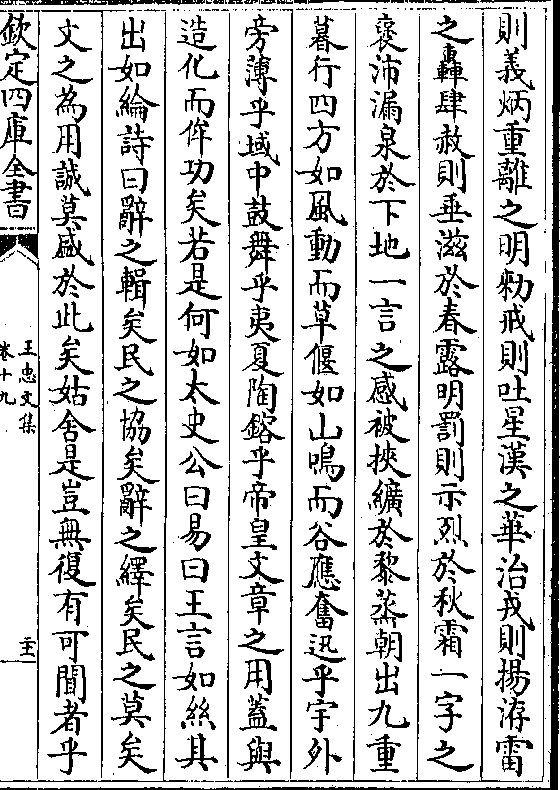 則義炳重離之明勑戒則吐星漢之華治戎則揚洊雷
之轟肆赦則垂滋於春露明罰則示烈於秋霜一字之
褒沛漏泉於下地一言之感被挾纊於黎蒸朝出九重
暮行四方如風動而草偃如山鳴而谷應奮迅乎宇外
旁薄乎域中鼓舞乎夷夏陶鎔乎帝皇文章之用蓋與
造化而侔功矣若是何如太史公曰易曰王言如絲其
出如綸詩曰辭之輯矣民之協矣辭之繹矣民之莫矣
文之為用誠莫盛於此矣姑舍是豈無復有可聞者乎
欽定四庫全書
王忠文集
卷十九